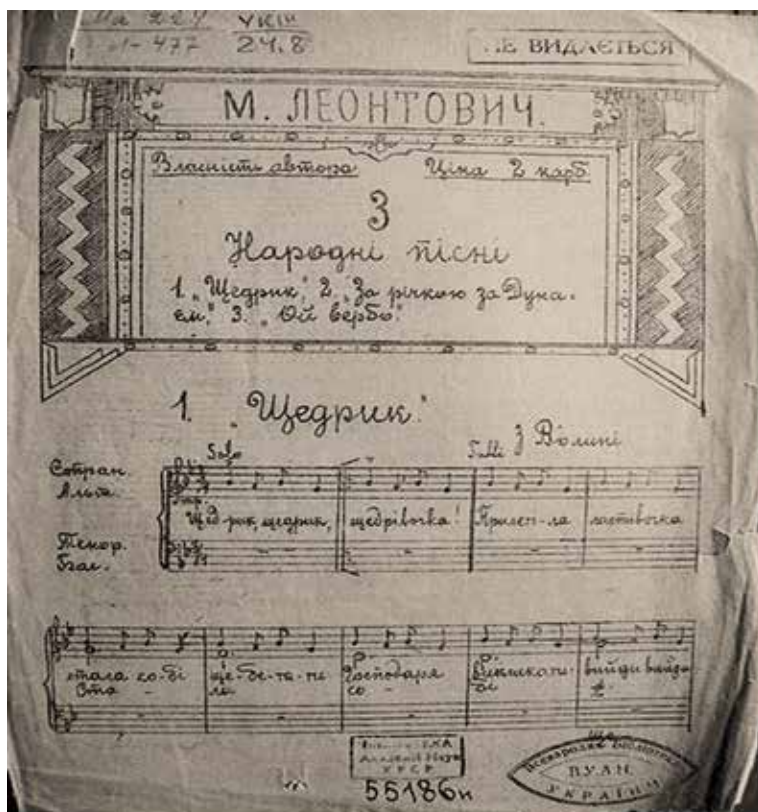 На 224 укій
1-477 24.8
НЕ ВИДАЄТЬСЯ
М. ЛЕОНТОВИЧ.
Власність автора Ціна 2 карб.
3
Народні пісні
1. „Щедрик", 2. „За річкою за Дуна-
єм." 3. „Ой вербо".
1. „Щедрик".
Solo Tutti З Волині
Сопран.
Альт.
Щед-рик, щедрик, щедрівочка! Прилеті-ла ластівочка
Тенор.
Бас.
стала со-бі ще-бе-та-ти Господаря викликати- вийди вийди-
Ста - ла со - бі
ще
Академії Наук
УРСР
55186н
Всенародня Бібліотека
ВУАН.
УКРАЇНИ